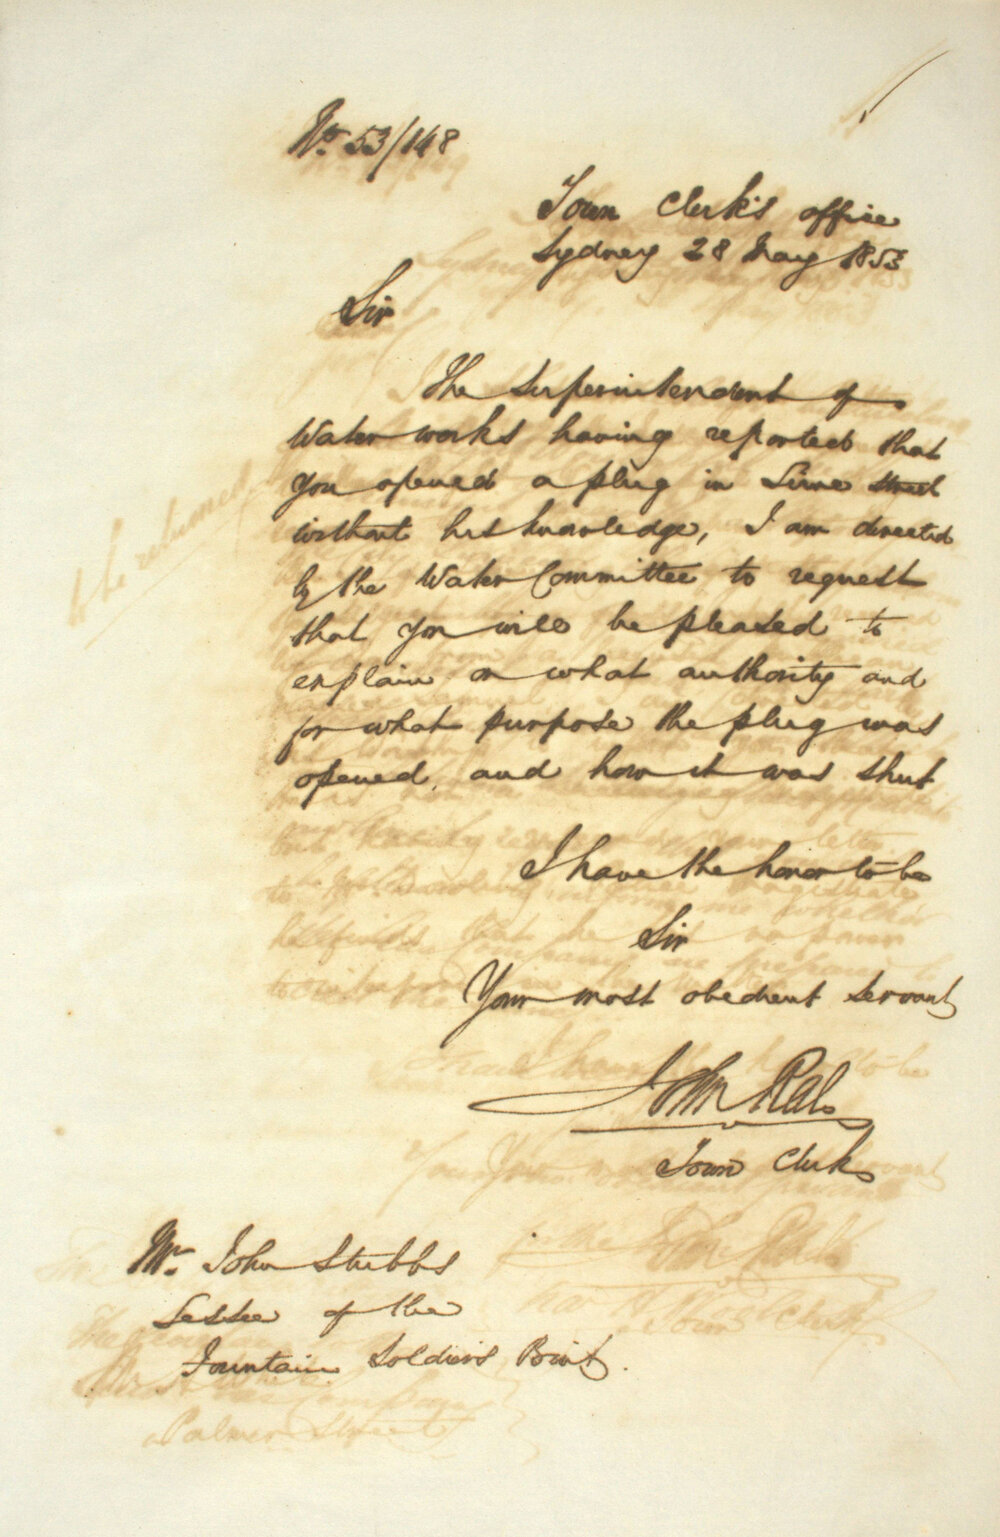 No. 53/148
Town Clerk's office
Sydney 28 May 1853
Sir
The Superintendent of
Water works having reported that
you opened a plug in Lime street
without his knowledge, I am directed
by the Water Committee to request
that you will be pleased to
explain on what authority and
for what purpose the plug was
opened, and how it was shut
I have the honor to be
Sir
Your most obedient servant
John Rae
Town Clerk
Mr. John Stubbs
Lessee of the
Fountain Soldiers Point.
to be returned
Palmer Street